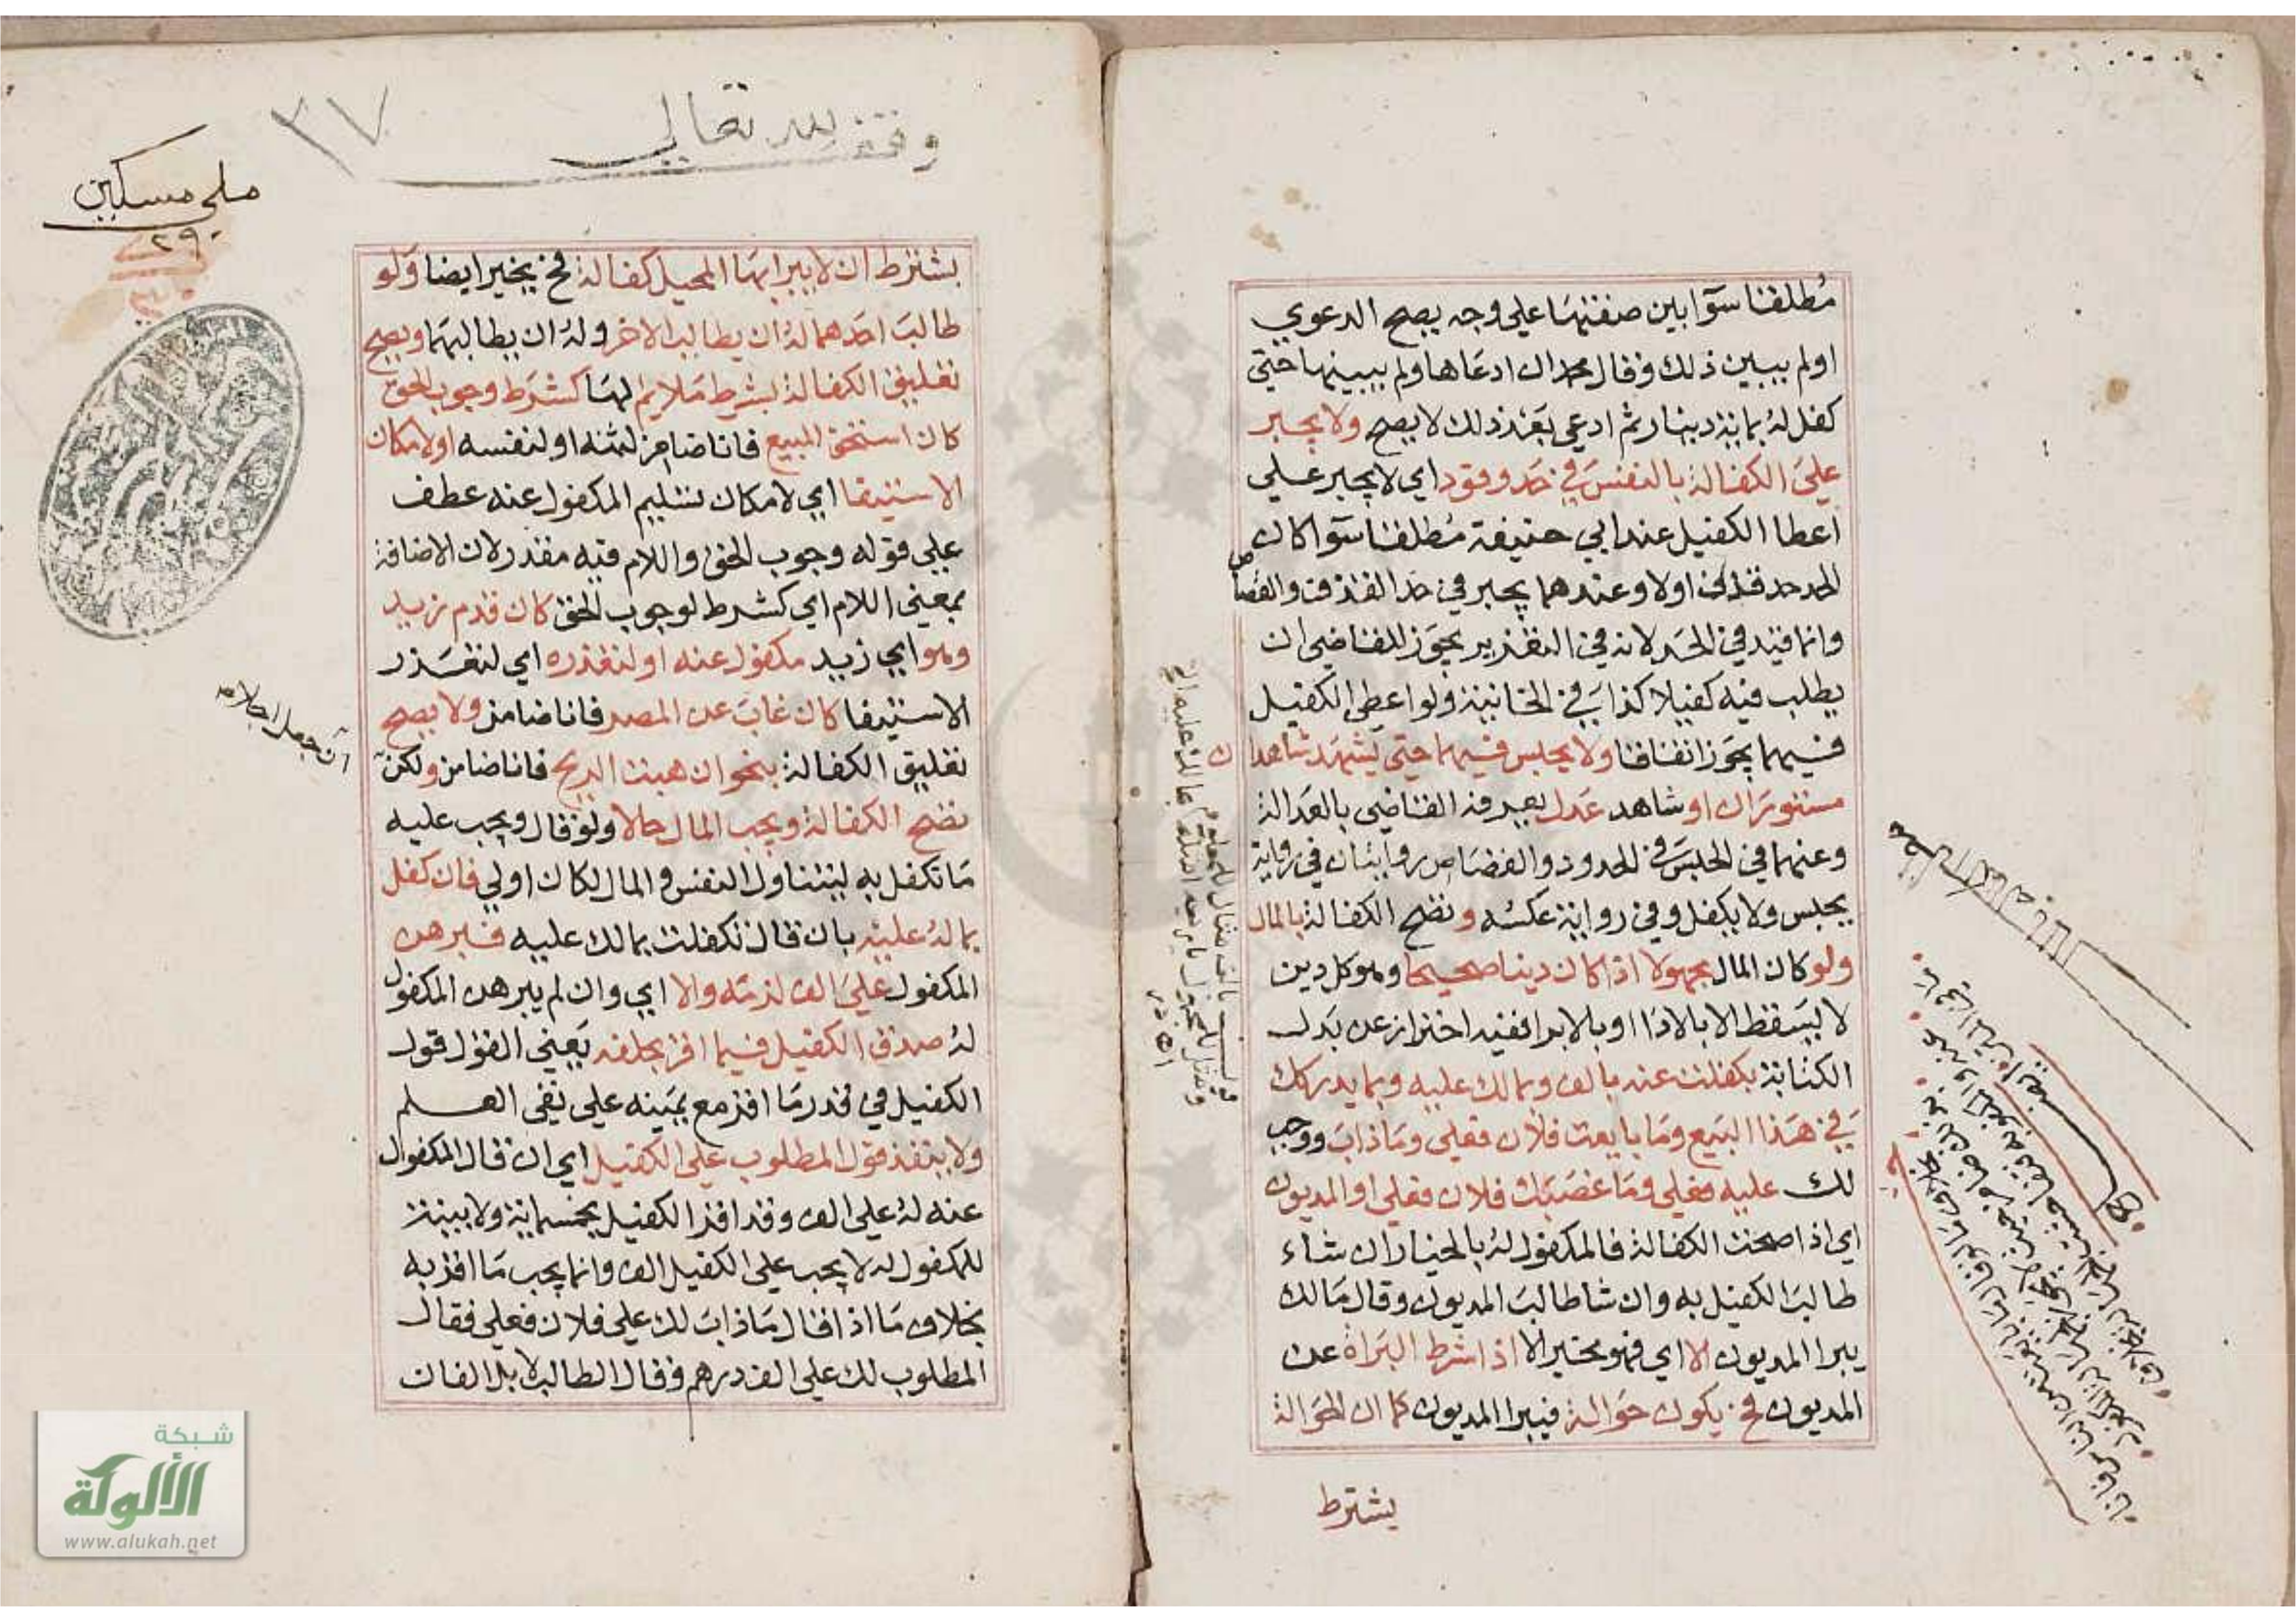 مطلقنا سوآ ابين صفتها علي وجه يصح الدعوي
اولم يبين ذلك وقال محمد ان ادعاها ولم يبينها حتي
كفل له بماية دينار ثم ادعي بعد ذلك لا يصح ولا يجبر
علي الكفالة بالنفس في حد وقود اي لا يجبر علي
اعطا الكفيل عند ابي حنيفة مطلقا سوآ كان
الحد حد قذف اولا وعندهما يجبر في حد القذف والقصاص
وانما قيد في الحد لانه في التعزير يجوز للقاضي ان
يطلب فيه كفيلا كذا في الخانية ولو اعطي الكفيل
فيهما يجوز اتفاقا ولا يحبس فيهما حتي يشهد شاهدان
مستوران او شاهد عدل يعرفه القاضي بالعدالة
وعنهما في الحبس في الحدود والقصاص روايتان في رواية
يحبس ولا يكفل وفي رواية عكسه وتصح الكفالة بالمال
ولو كان المال مجهولا اذا كان دينا صحيحا وهو كل دين
لا يسقط الا بالادا او بالابرا ففيه احتراز عن بدل
الكتابة بكفلت عنه بالف وبمالك عليه وبما يدركك
في هذا البيع وما بايعت فلان فعلي وما ذاب ووجب
لك عليه فعلي وما غصبك فلان فعلي او المديون
اي اذا صحت الكفالة فالمكفول له بالخيار ان شاء
طالب الكفيل به وان شا طالب المديون وقال مالك
يبرا المديون الا اي فهو مخير الا اذا شرط البراة عن
المديون فح يكون حوالة فيبرا المديون كما ان الحوالة
يشترط
وقف لله تعالي
٣٧
ملي مسكين
٢٩
بشترط ان لا يبرا بها المحيل كفالة فح يخير ايضا ولو
طالب احدهما له ان يطالب الاخر وله ان يطالبهما ويصح
تعليق الكفالة بشرط ملايم لها كشرط وجوب الحق
كان استحق المبيع فانا ضامن لثمنه او لنفسه اولامكان
الاستيفا اي لامكان تسليم المكفول عنه عطف
علي قوله وجوب الحق واللام فيه مقدر لان الاضافة
بمعني اللام اي كشرط لوجوب الحق كان قدم زيد
وهو اي زيد مكفول عنه او لتعذره اي لتعذر
الاستيفا كان غاب عن المصر فانا ضامن ولا يصح
تعليق الكفالة بنحو ان هبت الريح فانا ضامن ولكن
تصح الكفالة ويجب المال حالا ولو قال ويجب عليه
ما تكفل به ليتناول النفس والمال لكان اولي فان كفل
بما له عليه بان قال تكفلت بمالك عليه فبرهن
المكفول علي الف لزمه والا اي وان لم يبرهن المكفول
له صدق الكفيل فيما اقر بحلفه يعني القول قول
الكفيل في قدر ما اقر مع يمينه علي نفي العلم
ولا ينفذ قول المطلوب علي الكفيل اي ان قال المكفول
عنه له علي الف وقد اقر الكفيل بخمسماية ولا بينة
للمكفول له لا يجب علي الكفيل الف وانما يجب ما اقر به
بخلاف ما اذا قال ما ذاب لك علي فلان فعلي فقال
المطلوب لك علي الف درهم وقال الطالب لا بل الفان
شبكة
الألوكة
www.alukah.net